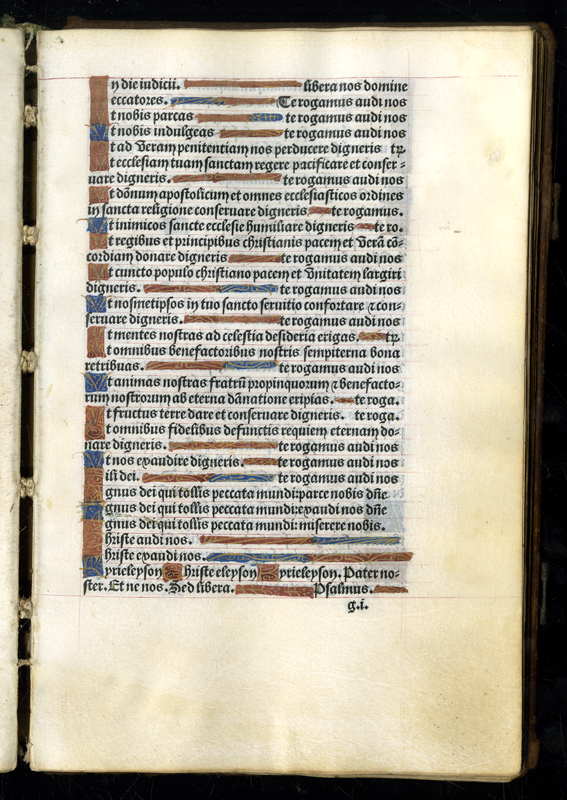 In die iudicii. libera nos domine
Peccatores. Te rogamus audi nos
Ut nobis parcas te rogamus audi nos
Ut nobis indulgeas te rogamus audi nos
Ut ad veram penitentiam nos perducere digneris te r.
Ut ecclesiam tuam sanctam regere pacificare et conser-
uare digneris. te rogamus audi nos
Ut dōnum apostolicum et omnes ecclesiasticos ordines
in sancta religione conseruare digneris te rogamus.
Ut inimicos sancte ecclesie humiliare digneris te ro.
Ut regibus et principibus christianis pacem et verā cō-
cordiam donare digneris te rogamus audi nos
Ut cuncto populo christiano pacem et vnitatem largiri
digneris. te rogamus audi nos
Ut nosmetipsos in tuo sancto seruitio confortare ⁊ con-
seruare digneris. te rogamus audi nos
Ut mentes nostras ad celestia desideria erigas. te r.
Ut omnibus benefactoribus nostris sempiterna bona
retribuas. te rogamus audi nos
Ut animas nostras fratrū propinquorum ⁊ benefacto-
rum nostrorum ab eterna dānatione eripias. te roga.
Ut fructus terre dare et conseruare digneris. te roga.
Ut omnibus fidelibus defunctis requiem eternam do-
nare digneris. te rogamus audi nos
Ut nos exaudire digneris. te rogamus audi nos
Fili dei. te rogamus audi nos
Agnus dei qui tollis peccata mundi:parce nobis dn̄e
Agnus dei qui tollis peccata mundi:exaudi nos dn̄e
Agnus dei qui tollis peccata mundi: miserere nobis.
Christe audi nos.
Christe exaudi nos.
Kyrieleyson Christe eleyson Kyrieleyson. Pater no-
ster. Et ne nos. Sed libera. Psalmus.
g.i.